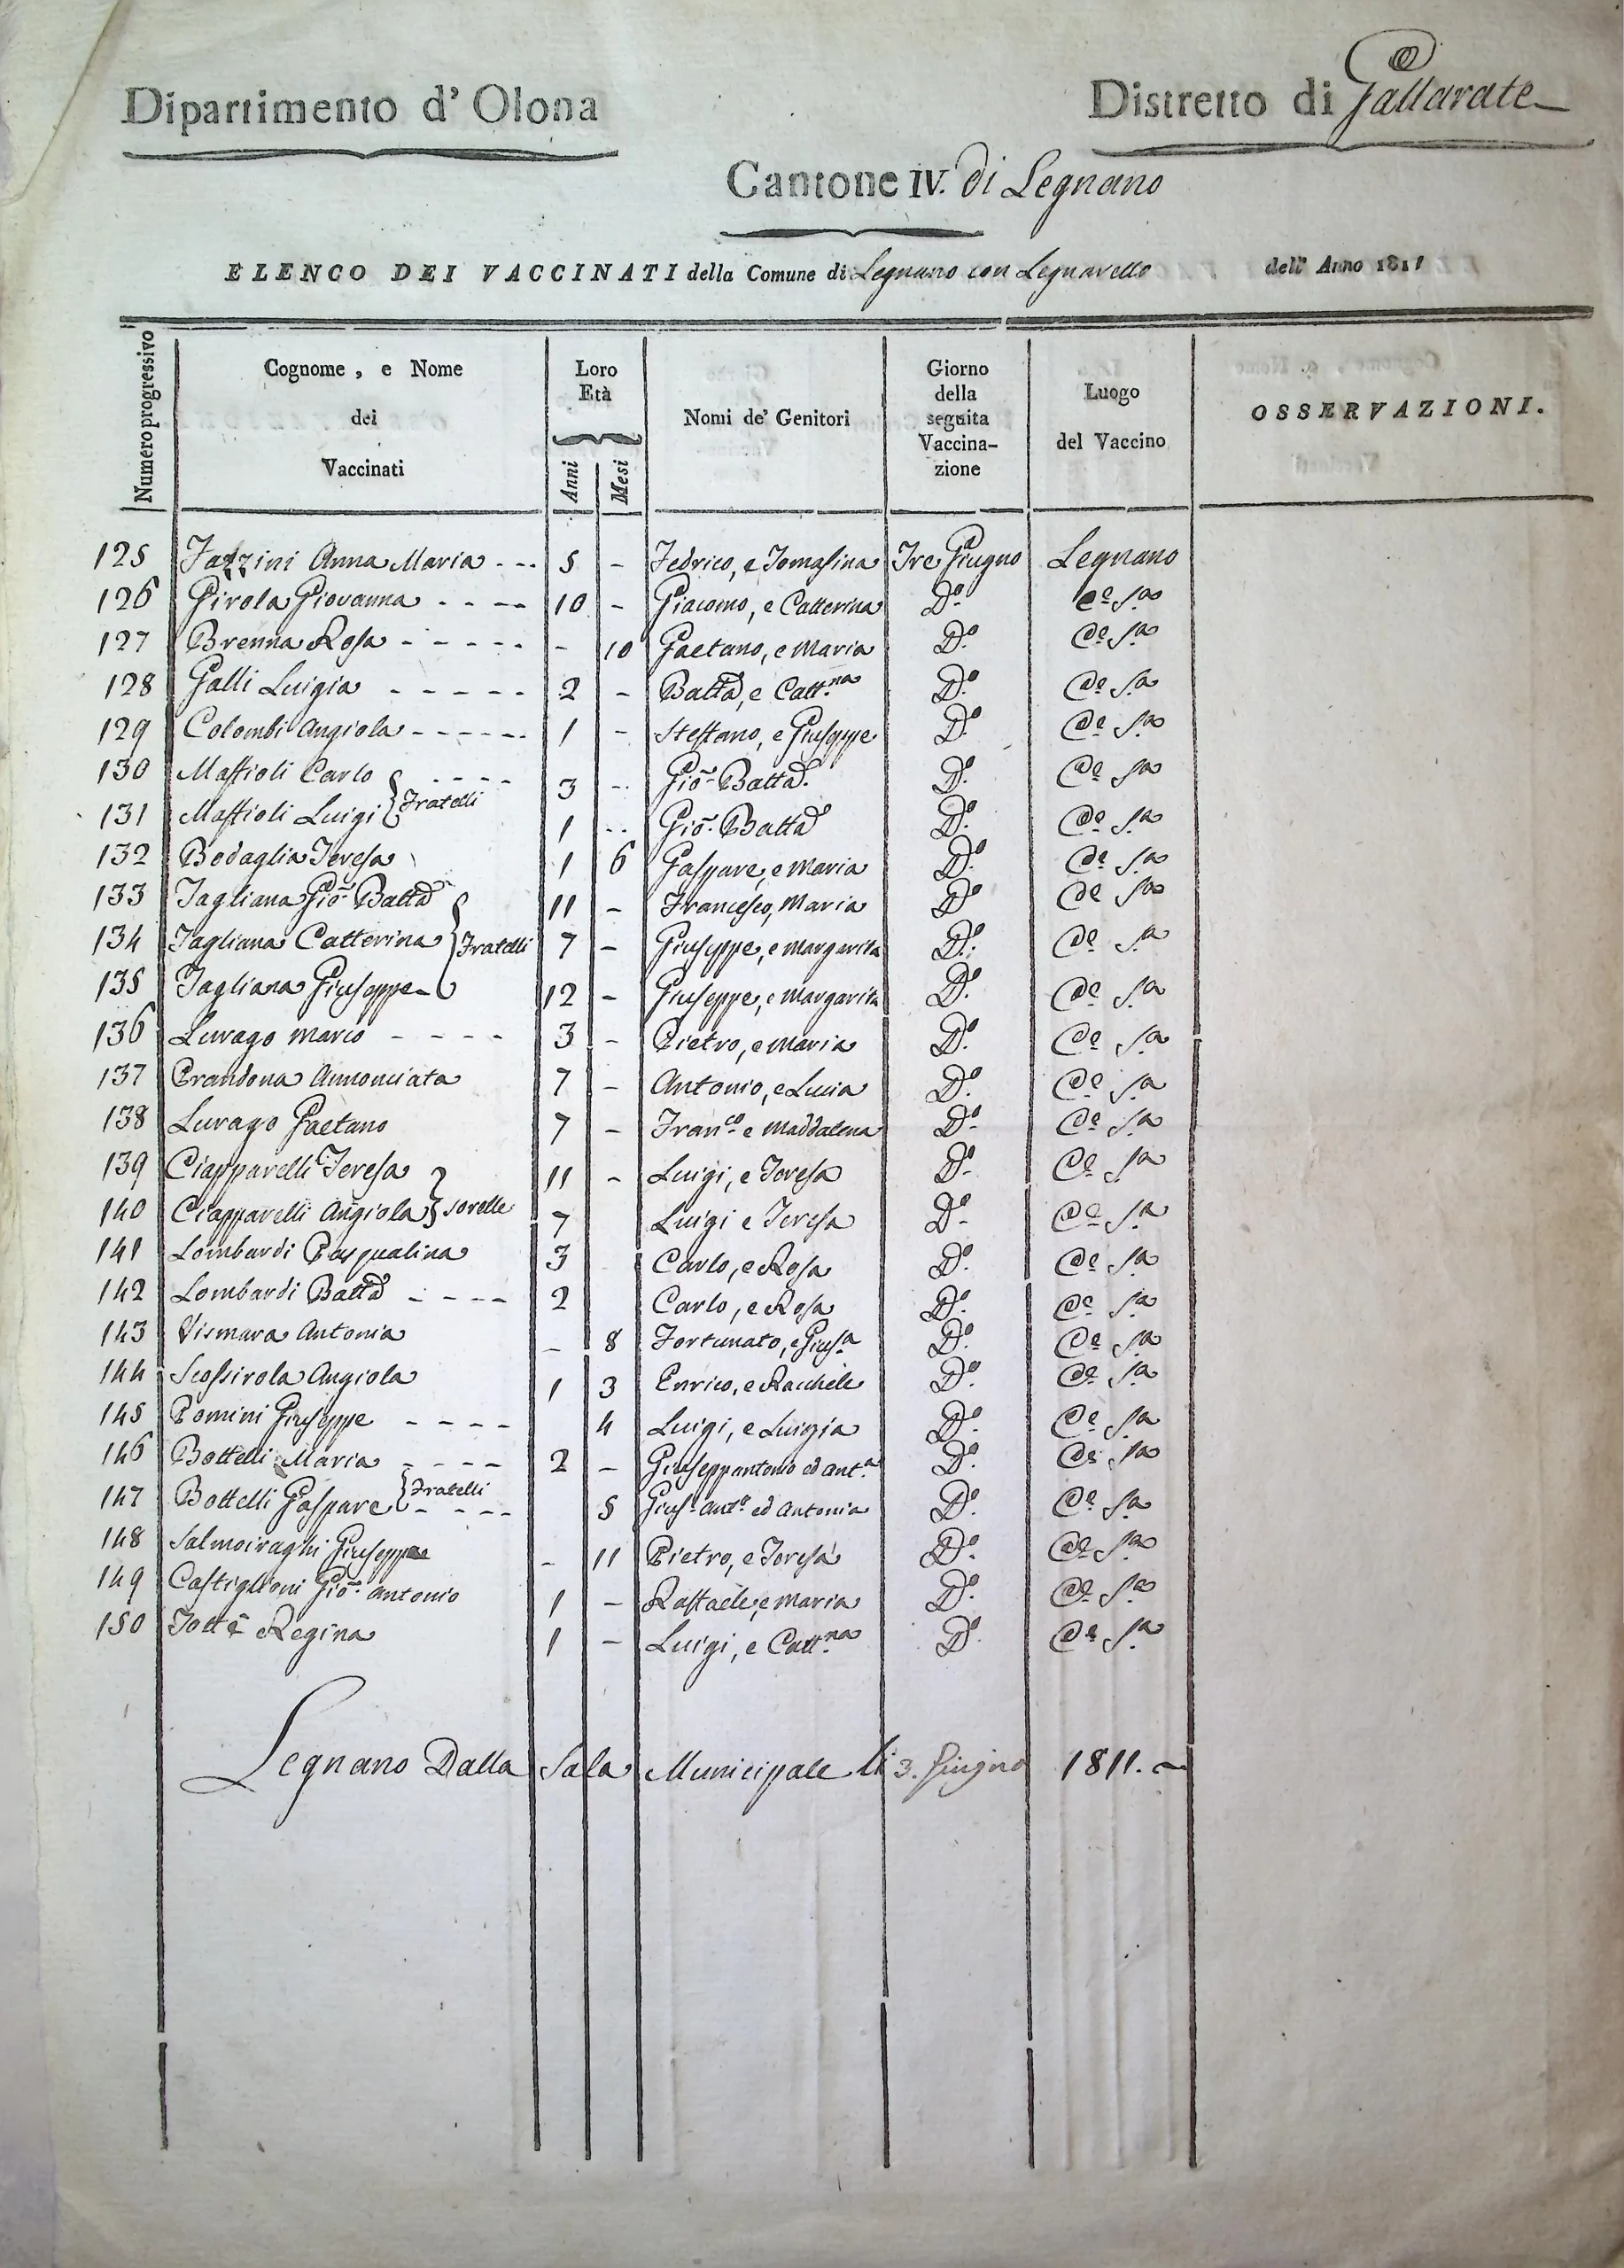 Dipartimento d' Olona
Distretto di Gallarate
Cantone IV. di Legnano
ELENCO DEI VACCINATI della Comune di Legnano con Legnarello dell' Anno 1811
Numero progressivo
Cognome, e Nome dei Vaccinati
Loro Età
Anni
Mesi
Nomi de' Genitori
Giorno della seguita Vaccinazione
Luogo del Vaccino
OSSERVAZIONI.
125 Fazzini Anna Maria - - - 5 - Fedrico, e Tomasina Tre Giugno Legnano
126 Girola Giovanna - - - - 10 - Giacomo, e Catterina Do. Ce. Sa
127 Brenna Rosa - - - - - - 10 Gaetano, e Maria Do. Ce. Sa
128 Galli Luigia - - - - - 2 - Batta, e Catt.na Do. Ce. Sa
129 Colombi Angiola - - - - - - 1 - Steffano, e Giuseppe Do. Ce. Sa
130 Maffioli Carlo - - - - 3 - Gio. Batta. Do. Ce. Sa
131 Maffioli Luigi } Fratelli 1 - Gio. Batta Do. Ce. Sa
132 Bodaglia Teresa 1 6 Gaspare, e Maria Do. Ce. Sa
133 Tagliana Gio. Batta 11 - Francesco, Maria Do Ce Sa
134 Tagliana Catterina } Fratelli 7 - Giuseppe, e Margarita Do. Ce. Sa
135 Tagliana Giuseppe 12 - Giuseppe, e Margarita Do. Ce. Sa
136 Lurago Marco - - - - 3 - Pietro, e Maria Do. Ce. Sa
137 Prandona Annonciata 7 - Antonio, e Lucia Do. Ce. Sa
138 Lurago Gaetano 7 - Fran.co e Maddalena Do. Ce. Sa
139 Ciapparelli Teresa 11 - Luigi, e Teresa Do. Ce. Sa
140 Ciapparelli Angiola } Sorelle 7 Luigi e Teresa Do. Ce. Sa
141 Lombardi Pasqualina 3 Carlo, e Rosa Do. Ce. Sa
142 Lombardi Batta - - - - 2 Carlo, e Rosa Do. Ce. Sa
143 Vismara Antonia - 8 Fortunato, e Gius.a Do. Ce. Sa
144 Scossirola Angiola 1 3 Enrico, e Racchele Do. Ce. Sa
145 Pomini Giuseppe - - - - 4 Luigi, e Luigia Do. Ce. Sa
146 Bottelli Maria - - - - 2 - Giuseppantonio ed Ant.a Do. Ce. Sa
147 Bottelli Gaspare } Fratelli - - - - 5 Gius. Ant.o ed Antonia Do. Ce. Sa
148 Salmoiraghi Giuseppe - 11 Pietro, e Teresa Do. Ce. Sa
149 Castiglioni Gio. Antonio 1 - Raffaele, e Maria Do. Ce. Sa
150 Totté Regina 1 - Luigi, e Catt.na Do. Ce. Sa
Legnano Dalla Sala Municipale li 3. Giugno 1811.